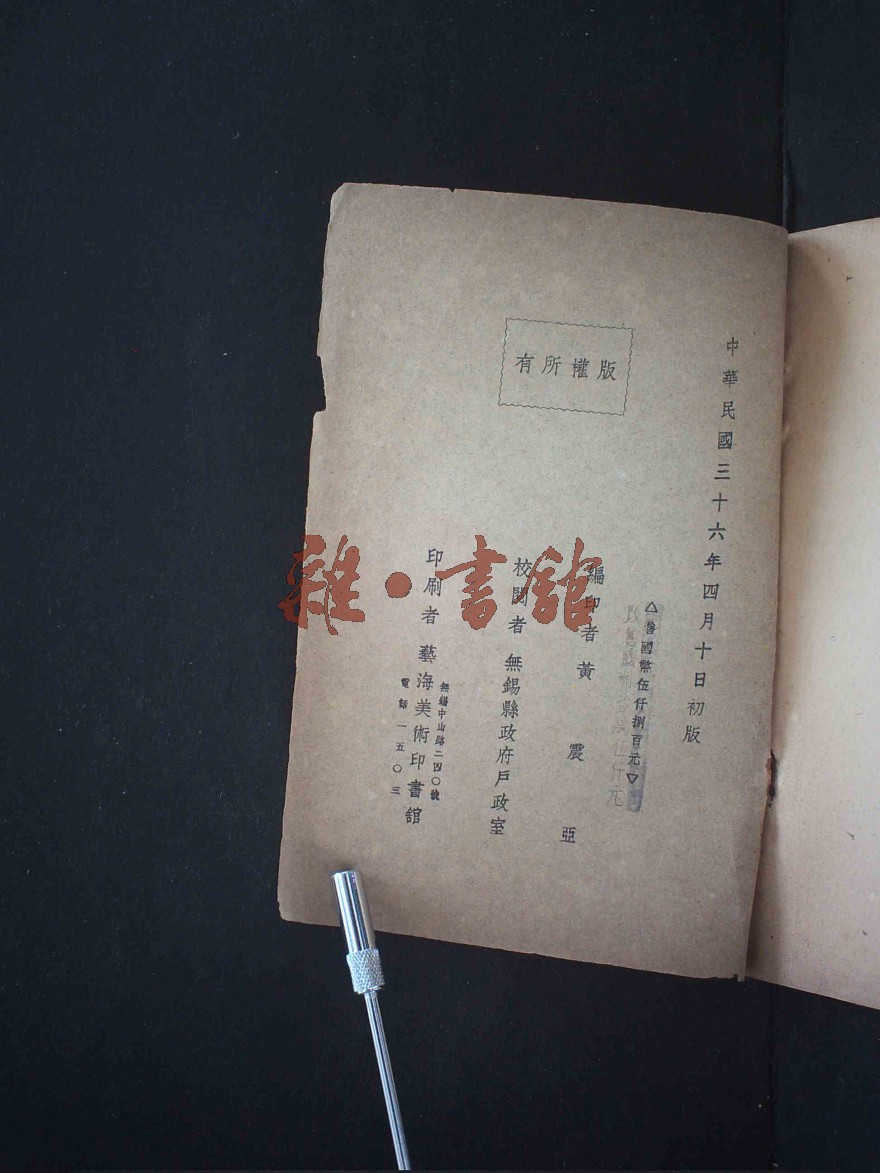 中華民國三十六年四月十日初版
版權所有
△售國幣伍仟捌百元▽
編印者 黃震亞
校閱者 無錫縣政府戶政室
印刷者 藝海美術印書館
無錫中山路二四〇號
電話一五〇三
雜·書館